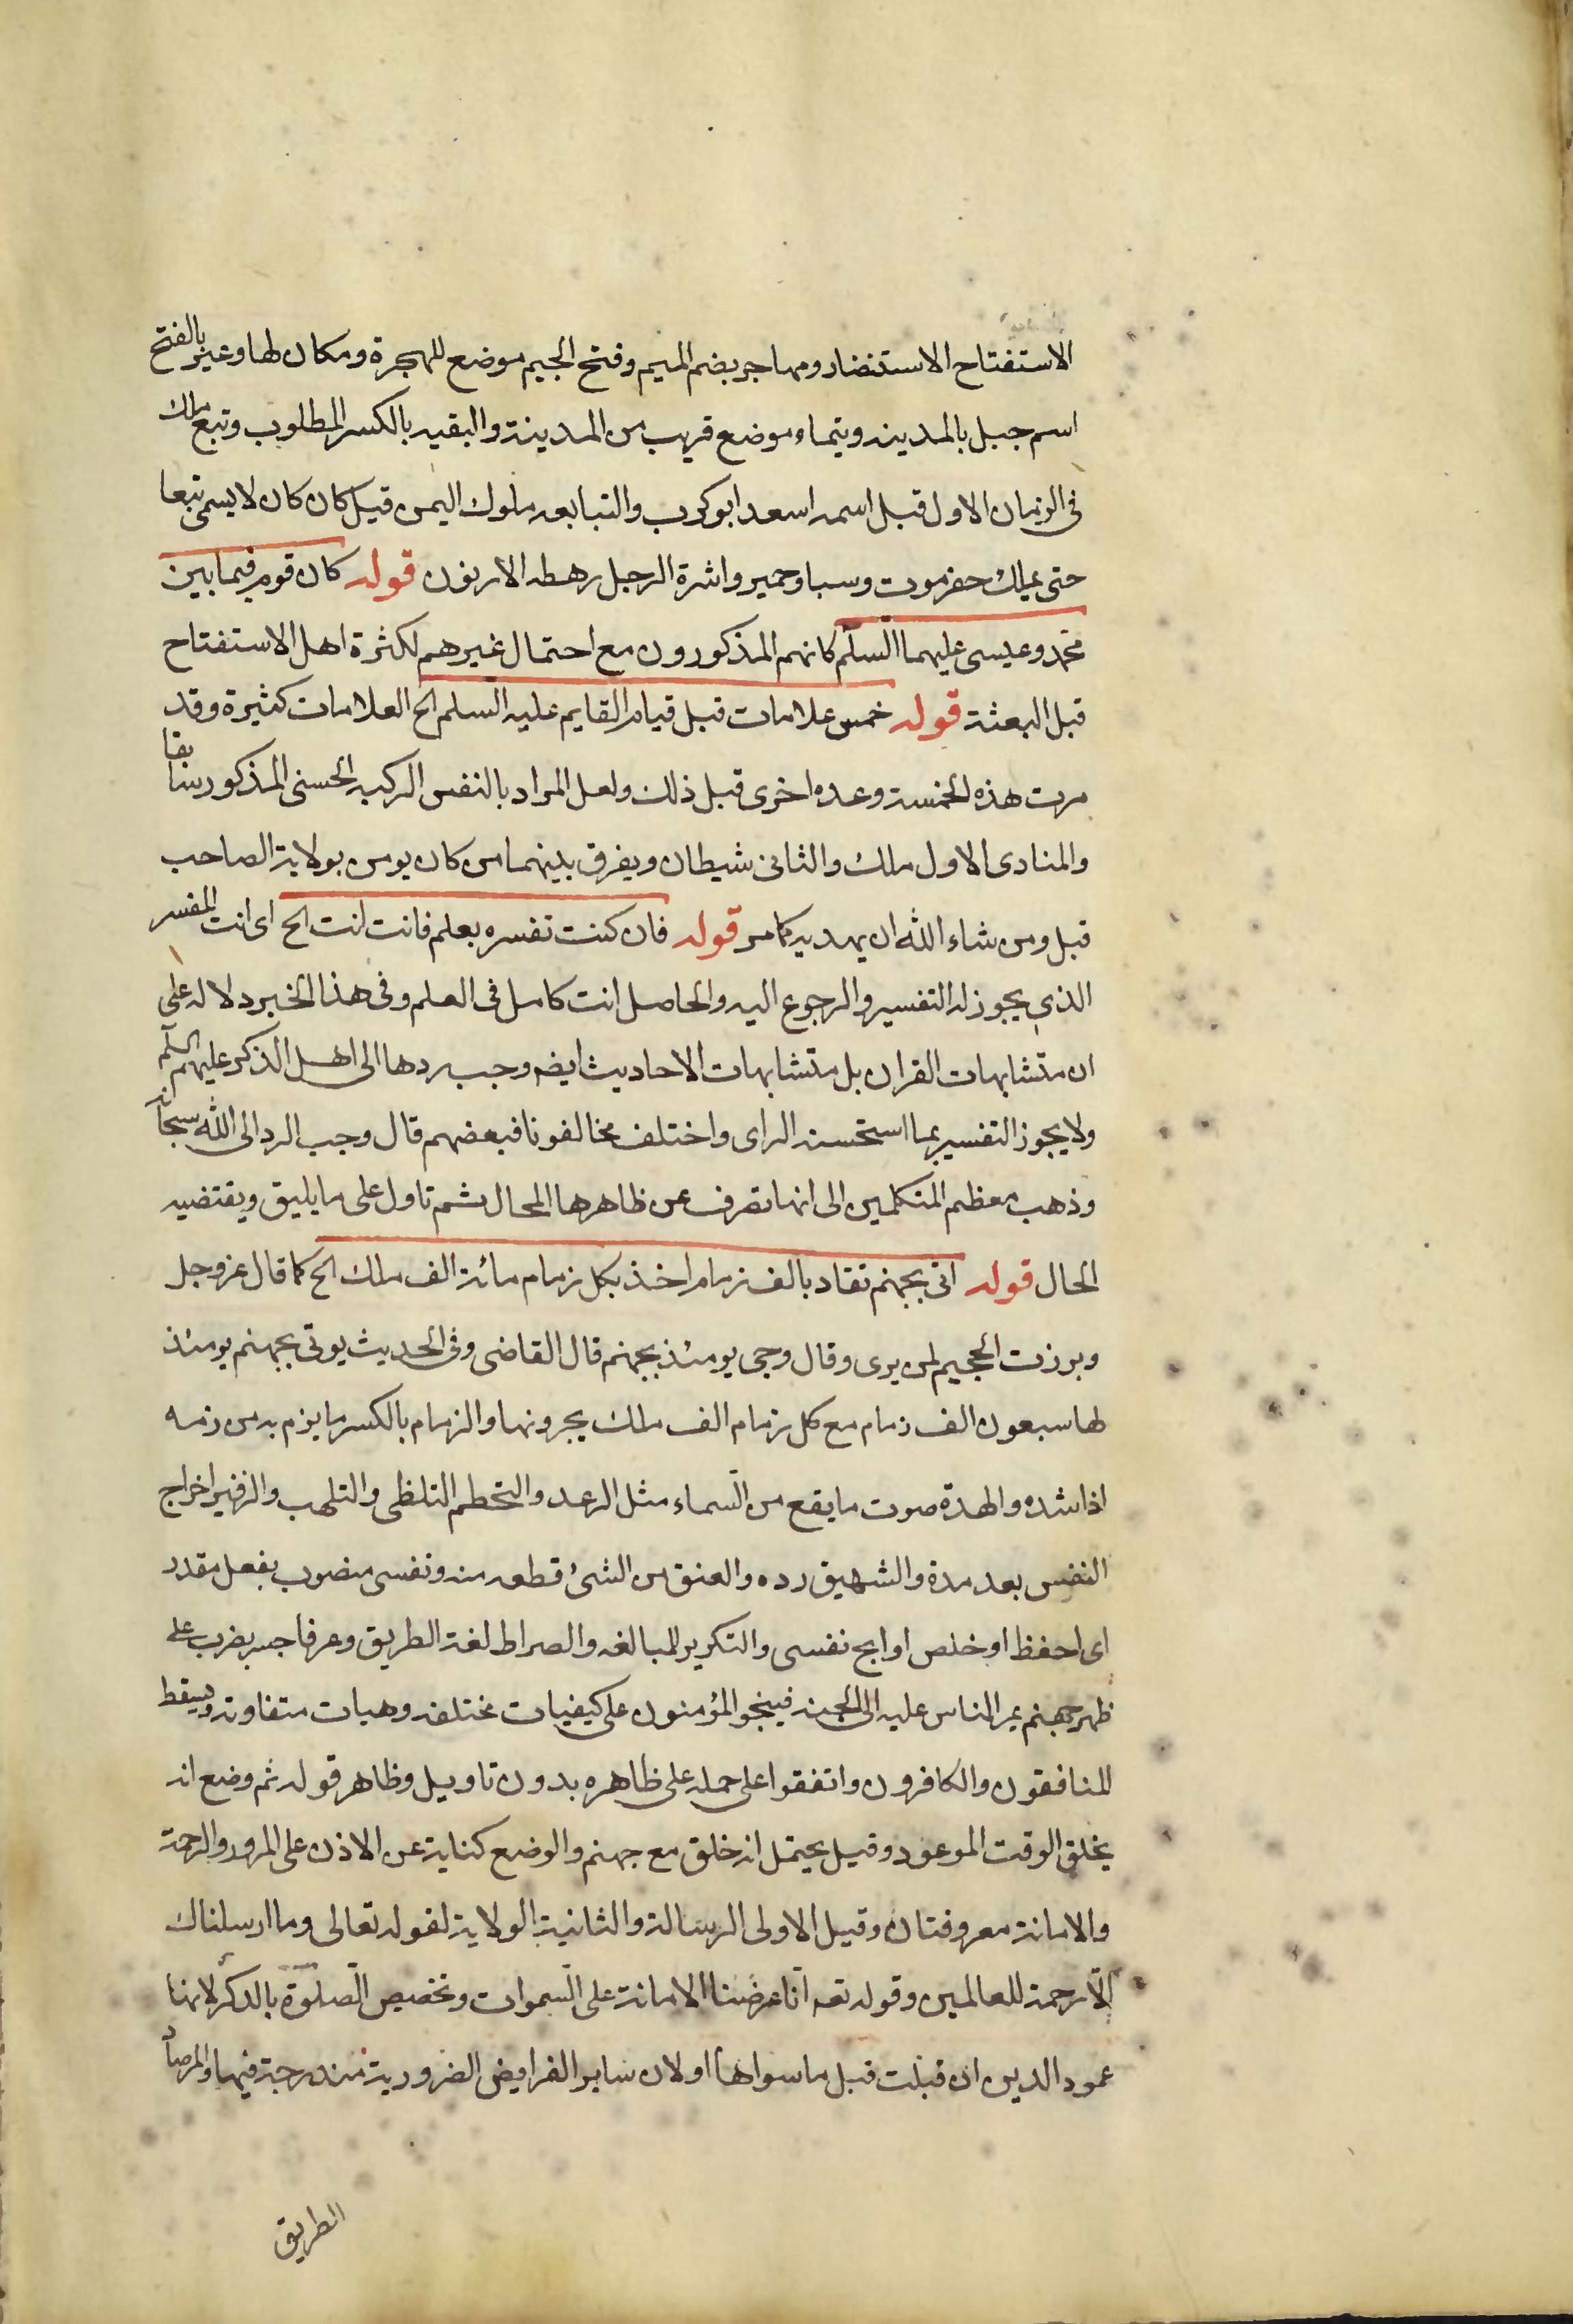 الاستفتاح الاستنصار ومهاجر بضم الميم وفتح الجيم موضع للهجرة ومكان لها وعير بالفتح
اسم جبل بالمدينه وتيماء موضع قريب من المدينة والبغيه بالكسر المطلوب وتبع ملك
فى الزمان الاول قبل اسمه اسعد ابو كرب والتبابعه ملوك اليمن قيل كان كان لا يسمى تبعا
حتى يملك حضرموت وسبا وحمير واسرة الرجل رهطه الادنون قوله كان قوم فيما بين
محمد وعيسى عليهما السلم كانهم المذكورون مع احتمال غيرهم لكثرة اهل الاستفتاح
قبل البعثة قوله خمس علامات قبل قيام القايم عليه السلم الخ العلامات كثيرة وقد
مرت هذه الخمسة وعده اخرى قبل ذلك ولعل المراد بالنفس الزكيه الحسنى المذكور سابقا
والمنادى الاول ملك والثانى شيطان ويفرق بينهما من كان يومن بولاية الصاحب
قبل ومن شاء الله ان يهديه كما مر قوله فان كنت تفسره بعلم فانت انت الخ اى انت المفسر
الذى يجوز له التفسير والرجوع اليه والحاصل انت كامل فى العلم وفى هذا الخبر دلاله على
ان متشابهات القران بل متشابهات الاحاديث ايضه وجب ردها الى اهل الذكر عليهم السلم
ولا يجوز التفسير بما استحسنه الراى واختلف مخالفونا فبعضهم قال وجب الرد الى الله سبحانه
وذهب معظم المتكلمين الى انها تصرف عن ظاهرها المحال ثم تاول على ما يليق ويقتضيه
الحال قوله اتى بجهنم تقاد بالف زمام اخذ بكل زمام مائة الف ملك الخ كما قال عز وجل
وبرزت الجحيم لمن يرى وقال وجى يومئذ بجهنم قال القاضى وفى الحديث يوتى بجهنم يومئذ
لها سبعون الف زمام مع كل زمام الف ملك يجرونها والزمام بالكسر ما يزم به من زمه
اذا شده والهدة صوت ما يقع من السماء مثل الرعد والتحطم التلظى والتلهب والزفير اخراج
النفس بعد مدة والشهيق رده والعنق من الشئ قطعه منه ونفسى منصوب بفعل مقدر
اى احفظ او خلص او انج نفسى والتكرير للمبالغه والصراط لغة الطريق وعرفا جسر يضرب على
ظهر جهنم يمر الناس عليه الى الجنه فينجو المؤمنون على كيفيات مختلفه وهيات متفاوته ويسقط
المنافقون والكافرون واتفقوا على حمله على ظاهره بدون تاويل وظاهر قوله ثم وضع انه
يخلق الوقت الموعود وقيل يحتمل انه خلق مع جهنم والوضع كناية عن الاذن على المرور والرحمة
والامانة معروفتان وقيل الاولى الرسالة والثانية الولاية لقوله تعالى وما ارسلناك
الّا رحمة للعالمين وقوله تعه انّا عرضنا الامانة على السموات وتخصيص الصلوة بالذكر لانها
عمود الدين ان قبلت قبل ما سواها او لان ساير الفرايض الضرورية مندرجة فيها والمرصاد
الطريق